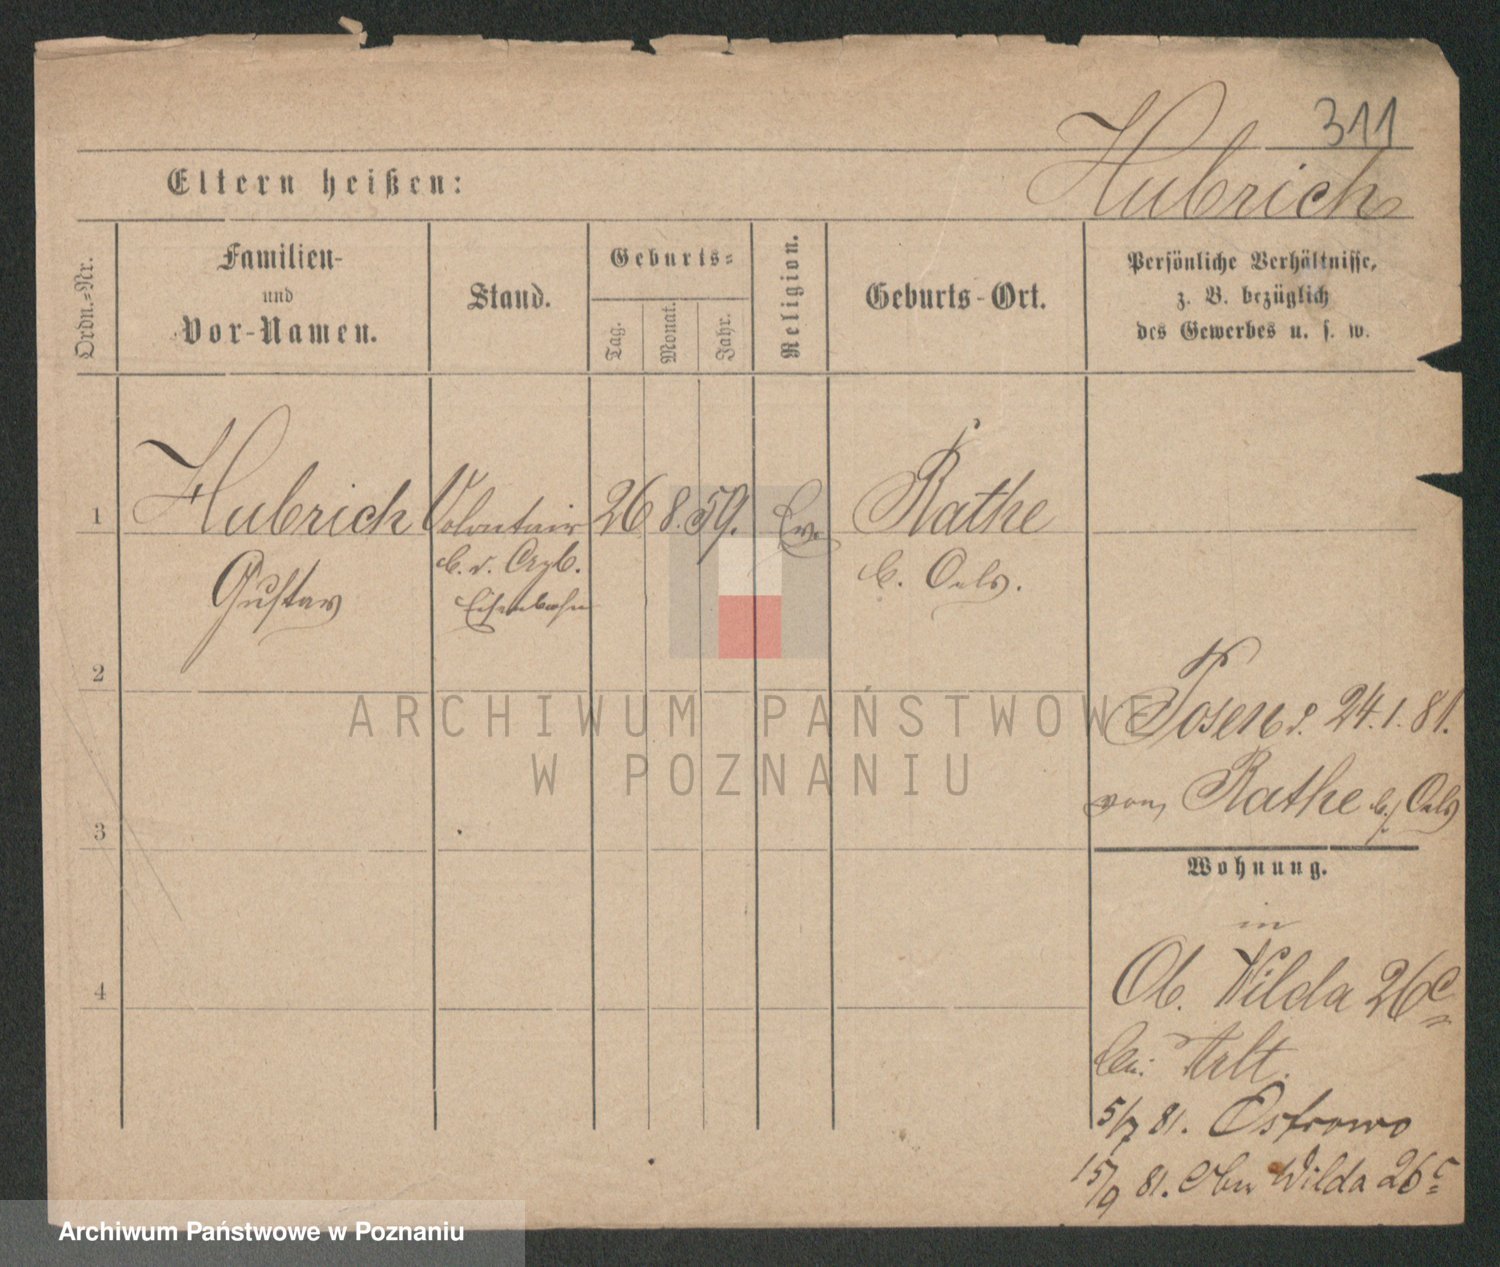 311
Hubrich
Eltern heißen:
Ordn.-Nr.
Familien-
und
Vor-Namen.
Stand.
Geburts-
Tag.
Monat.
Jahr.
Religion.
Geburts-Ort.
Persönliche Verhältnisse,
z. B. bezüglich
des Gewerbes u. s. w.
1
Hubrich Volontair 26 8. 59. Ev. Rathe
Gustav
b. d.
Eisenbahn
b. Oels.
2
Posen d. 24.1.81.
von Rathe b/ Oels
3
Wohnung.
in
Ob. Wilda 26c
bei Arlt.
4
5/7 81. Ostrowo
15/9 81. Ober Wilda 26c
ARCHIWUM PAŃSTWOWE
W POZNANIU
Archiwum Państwowe w Poznaniu